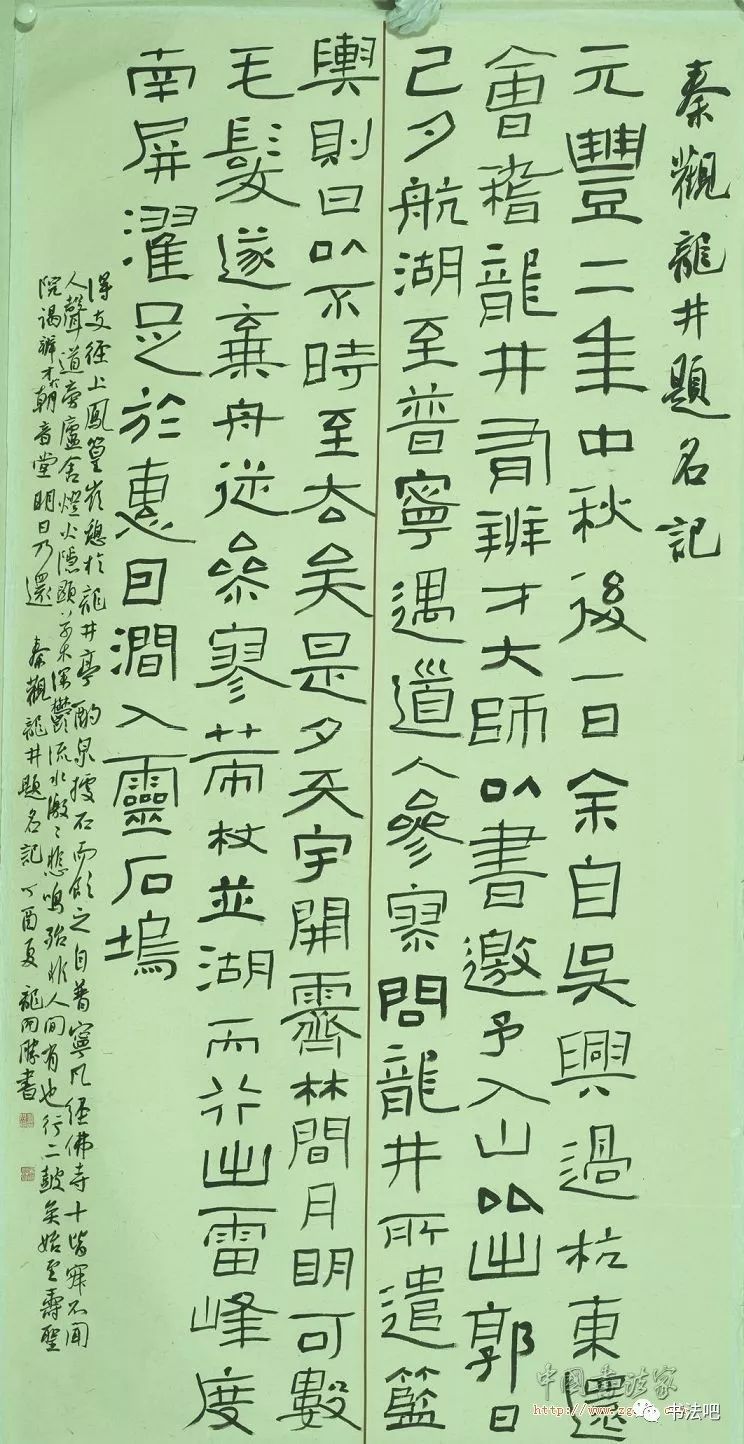 秦觀龍井題名記
元豐二年中秋後一日余自吳興過杭東還
會稽龍井有辨才大師以書邀予入山比出郭日
已夕航湖至普寧遇道人參寥問龍井所遣籃
輿則曰以不時至去矣是夕天宇開霽林間月明可數
毛髮遂棄舟從參寥策杖並湖而行出雷峰度
南屏濯足於惠因澗入靈石塢
得支徑上鳳篁嶺憩於龍井亭酌泉據石而飲之自普寧凡經佛寺十皆寂不聞
人聲道旁廬舍燈火隱顯草木深鬱流水激〻悲鳴殆非人間有也行二鼓矣始至壽聖
院謁辨才於朝音堂明日乃還 秦觀龍井題名記 丁酉夏 龍開勝書
中國書法家
http://www.zg
书法吧